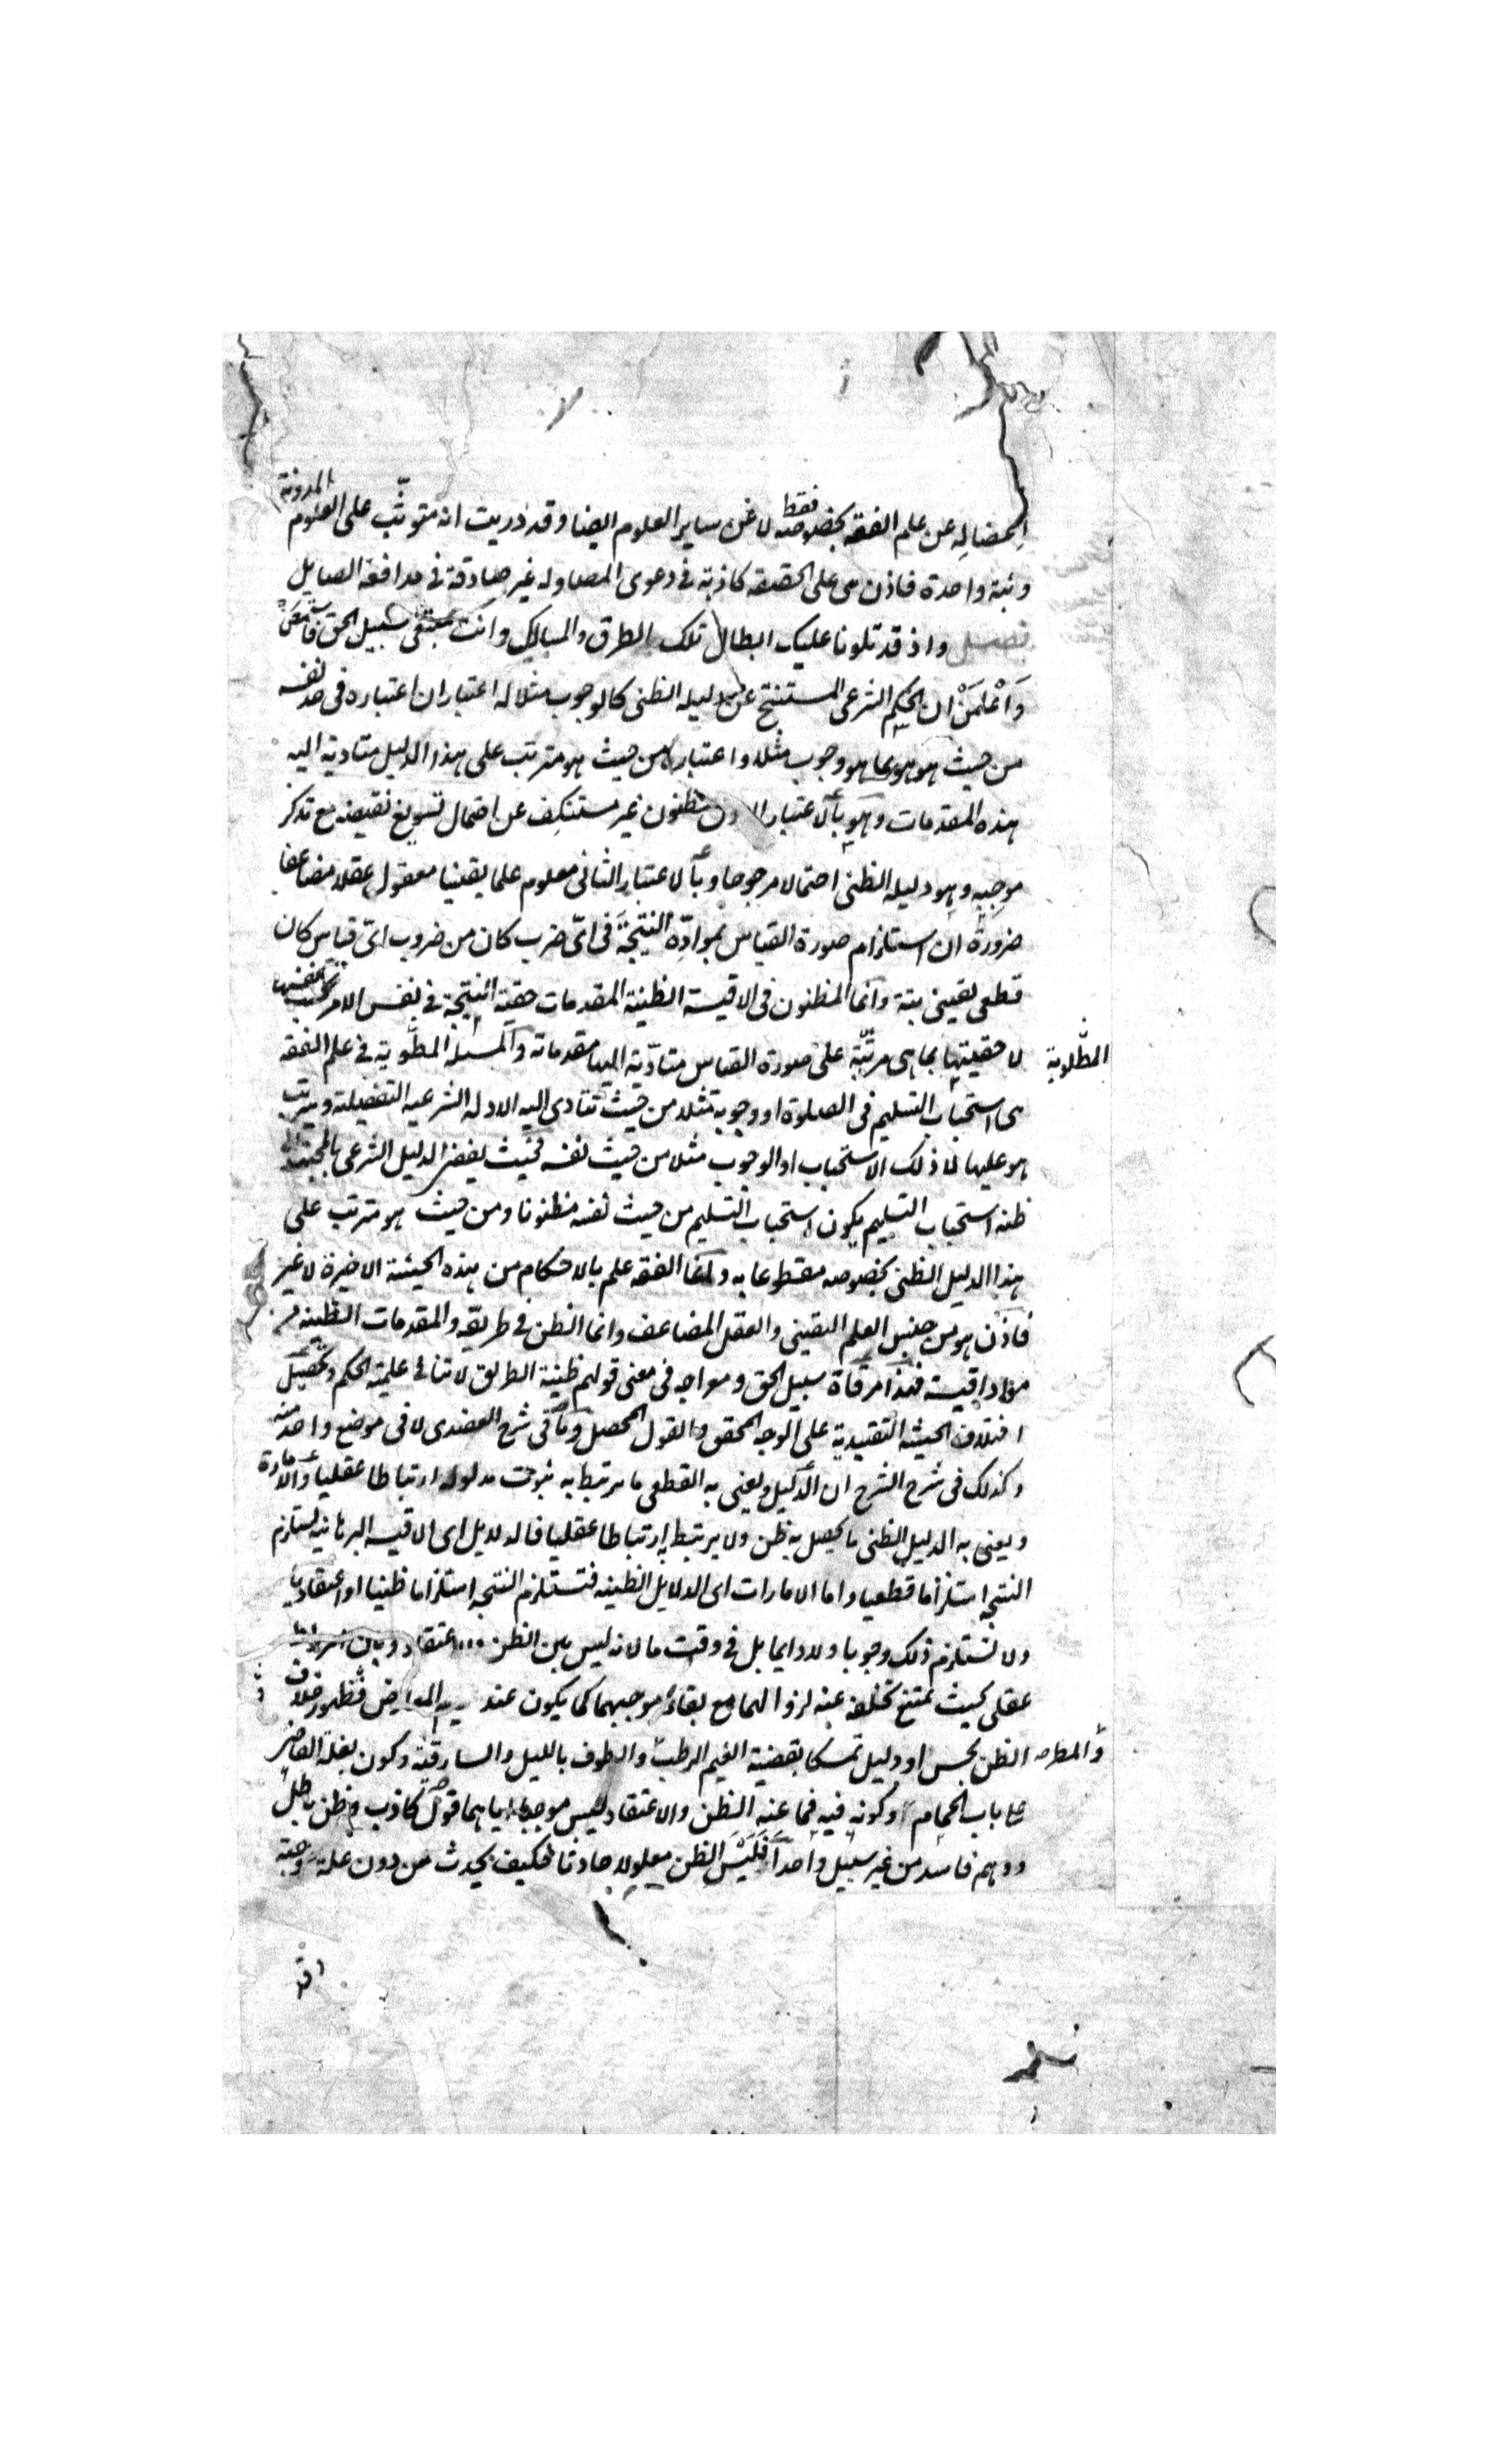 المضاله عن علم الفقه بخصوصه فقط لا عن ساير العلوم ايضا وقد دريت انه متوثّب على العلوم المدونة
وثبة واحدة فاذن هى على الحقيقه كاذبة فى دعوى المصاوله غير صادقة فى مدافعة الصايل
فصل واذ قد تلونا عليك ابطال تلك الطرق والمسالك وانت سبيل الحق
وَاعْلمَنْ ان الحكم الشرعى المستنتج عن دليله الظنى كالوجوب مثلا له اعتباران اعتباره فى حد نفسه
من حيث هو هو بما هو وجوب مثلا واعتباره من حيث هو مترتب على هذا الدليل متادية اليه
هذه المقدمات وهو بالاعتبار الاول مظنون غير مستنكف عن احتمال تسويغ نقيضه مع تذكر
موجبه وهو دليله الظنى احتمالا مرجوحا وبالاعتبار الثانى معلوم علما يقينيا معقول عقلا مضاعفا
ضرورة ان استلزام صورة القياس بموادّه النتيجة فى اىّ ضرب كان من ضروب اىّ قياس كان
قطعى يقينى بتة وانما المظنون فى الاقيسة الظنية المقدمات حقية النتيجة فى نفس الامر بحسب نفسها
لا حقيتها بما هى مرتّبة على صورة القياس متادّية اليها مقدماته والمسئلة المطلوبة فى علم الفقه
المطلوبة
هى استحباب التسليم فى الصلوة او وجوبه مثلا من حيث تتادى اليه الادلة الشرعيه التفصيلية ويترتب
هو عليها لا ذلك الاستحباب او الوجوب مثلا من حيث نفسه فحيث يفضى الدليل الشرعى بالمجتهد الى
ظنه استحباب التسليم يكون استحباب التسليم من حيث نفسه مظنونا ومن حيث هو مترتب على
هذا الدليل الظنى بخصوصه مقطوعا به وانما الفقه علم بالاحكام من هذه الحيثية الاخيرة لا غير
فاذن هو من جنس العلم اليقينى والعقل المضاعف وانما الظن فى طريقه والمقدمات الظنية
مواد اقيسة فهذا مرقاة سبيل الحق ومعراجه فى معنى قولهم ظنية الطريق لا تنافى علمية الحكم وتحصيل
اختلاف الحيثية التقييدية على الوجه المحقق والقول المحصل وما فى شرح العضدى لا فى موضع واحد منه
وكذلك فى شرح الشرح ان الدليل ويعنى به القطعى ما يرتبط به ثبوت مدلوله ارتباطا عقليا والامارة
ويعنى به الدليل الظنى ما يحصل به ظن ولا يرتبط به ارتباطا عقليا فالدلايل اى الاقيسه البرهانية يستلزم
النتيجة استلزاما قطعيا واما الامارات اى الدلايل الظنيه فتستلزم النتيجه استلزاما ظنيا او اعتقاديا
ولا تستلزم ذلك وجوبا ولا دايما بل فى وقت ما لانه ليس بين الظن والاعتقاد وبين
عقلى بحيث يمتنع تخلفه عنه لزوالهما مع بقاء موجبهما كما يكون عند المعارض فظهور خلاف
الظن بحس او دليل تمسكا بقضية الغيم الرطب والطوف بالليل والسارقية وكون بغلة القاضى
على باب الحمام وكونه فيه فما عنه الظن والاعتقاد ليس موجبا اياهما قول كاذب وظن باطل
ووهم فاسد من غير سبيل واحد افليس الظن معلولا حادثا فكيف يحدث من دون علة